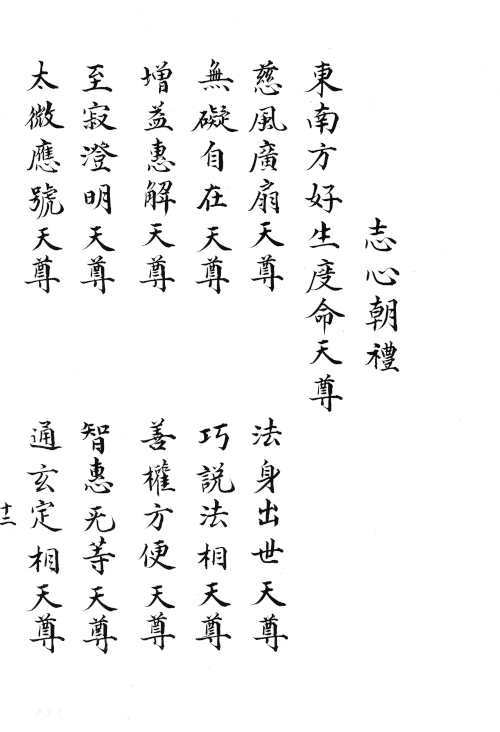 志心朝禮
東南方好生度命天尊
慈風廣扇天尊
法身出世天尊
無礙自在天尊
巧説法相天尊
增益惠解天尊
善權方便天尊
至寂澄明天尊
智惠无等天尊
太微應號天尊
通玄定相天尊
十二